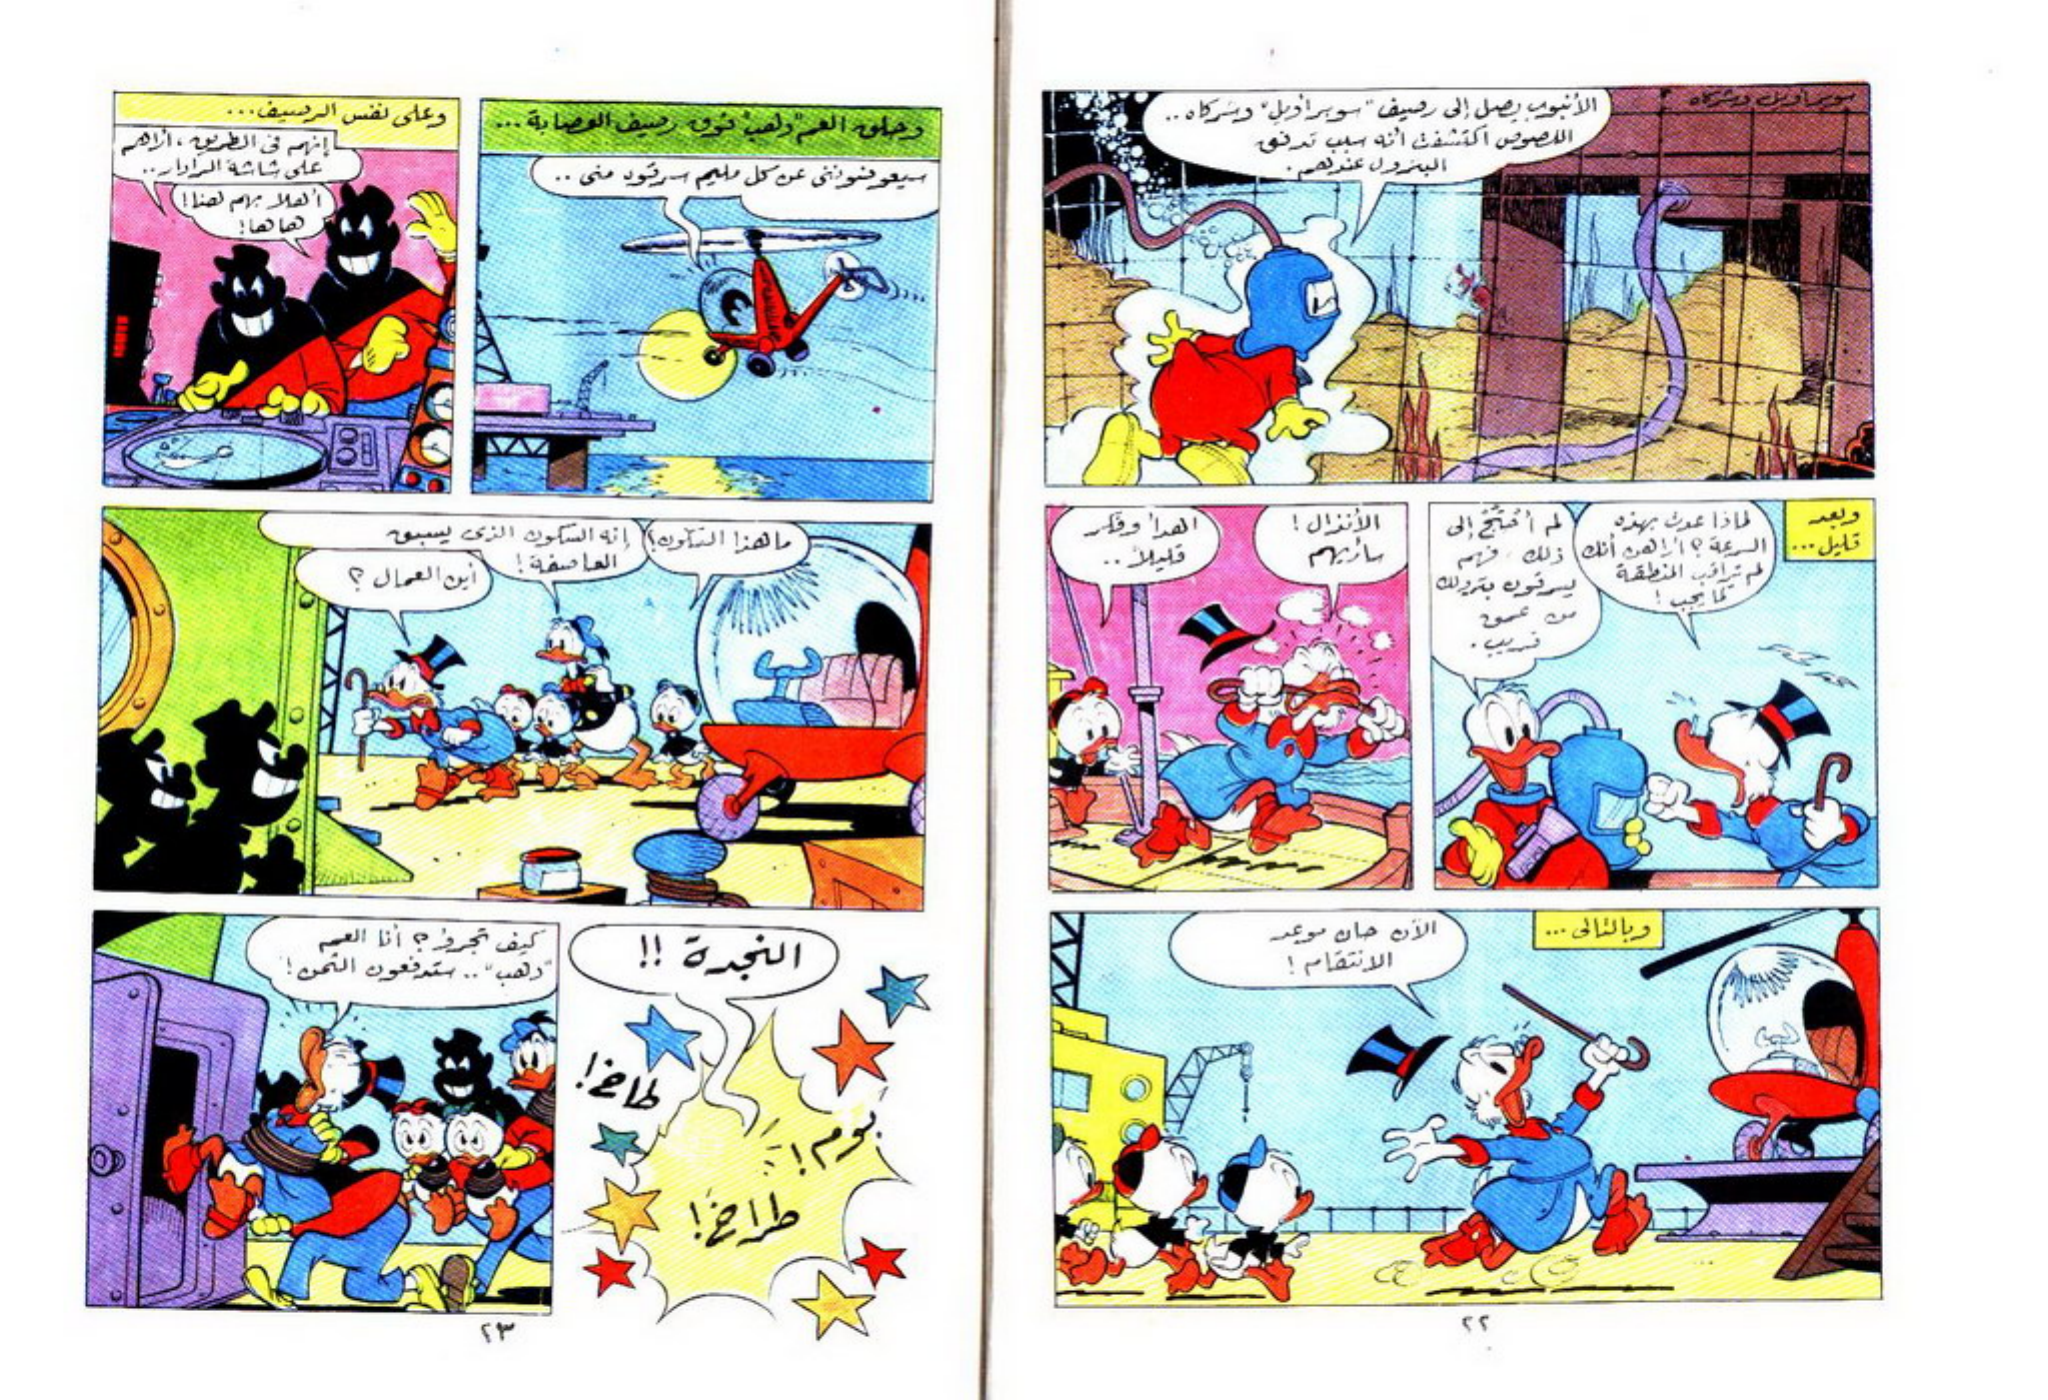 سوبر أويل وشركاه
الأنبوب يصل إلى رصيف "سوبر أويل" وشركاه ..
اللصوص اكتشفت أنه سبب تدفق
البترول عندهم.
وبعد
قليل...
لماذا عدت بهذه
السرعة؟ أراهن أنك
لم تراقب المنطقة
كما يجب!
لم أحتج إلى
ذلك، فهم
يسرقون بترولك
من عمق
قريب.
الأنذال!
سأريهم
اهدأ وفكر
قليلاً..
وبالتالى ...
الآن حان موعد
الانتقام!
٢٢
وحلق العم "دهب" فوق رصيف العصابة ...
سيعوضوننى عن كل مليم سرقوه منى ..
وعلى نفس الرصيف...
إنهم فى الطريق، أراهم
على شاشة الرادار..
أهلا بهم هنا!
هاها!
ما هذا السكون؟
إنه السكون الذى يسبق
العاصفة!
أين العمال ؟
النجدة !!
طاخ!
بوم!
طراخ!
كيف تجرؤ؟ أنا العم
"دهب".. ستدفعون الثمن!
٢٣